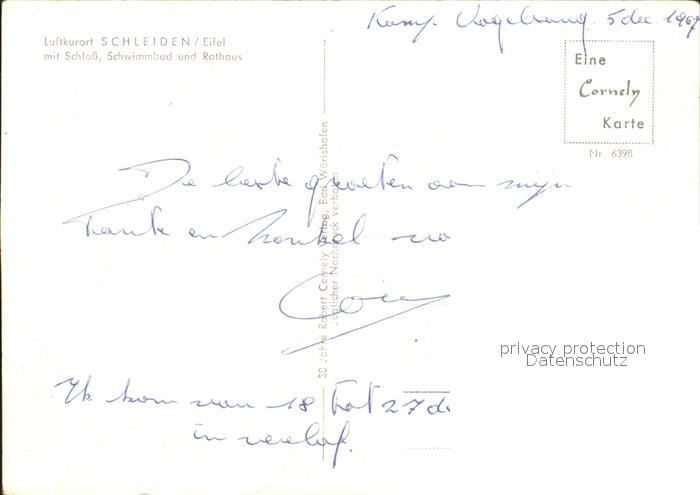 Kamp Vogelsang 5 dec. 196
Luftkurort SCHLEIDEN / Eifel
mit Schloß, Schwimmbad und Rathaus
Eine
Cornely
Karte
Nr. 6398
De beste groeten aan mijn
tante en nonkel
30 Jahre Robert Cornely Verlag, Bad Wörishofen
Jeglicher Nachdruck verboten
privacy protection
Datenschutz
Ik kom van 18 tot 27 de
in verlof.